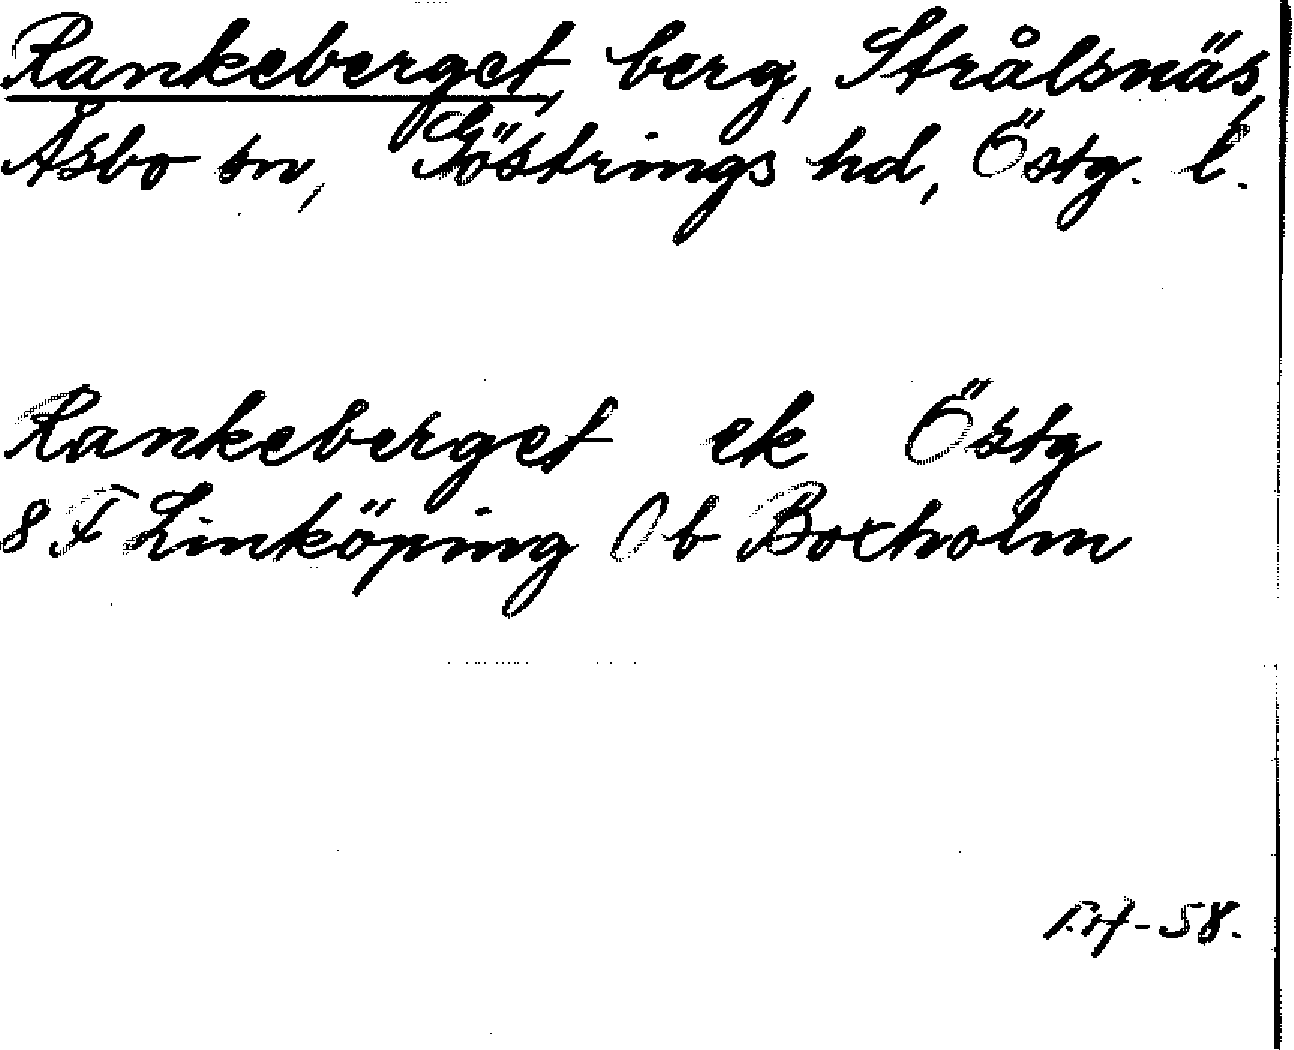 Rankeberget, berg, Strålsnäs,
Åsbo sn, Göstrings hd, Östg. l.
Rankeberget ek Östg
8 F Linköping Ob Boxholm
-58.